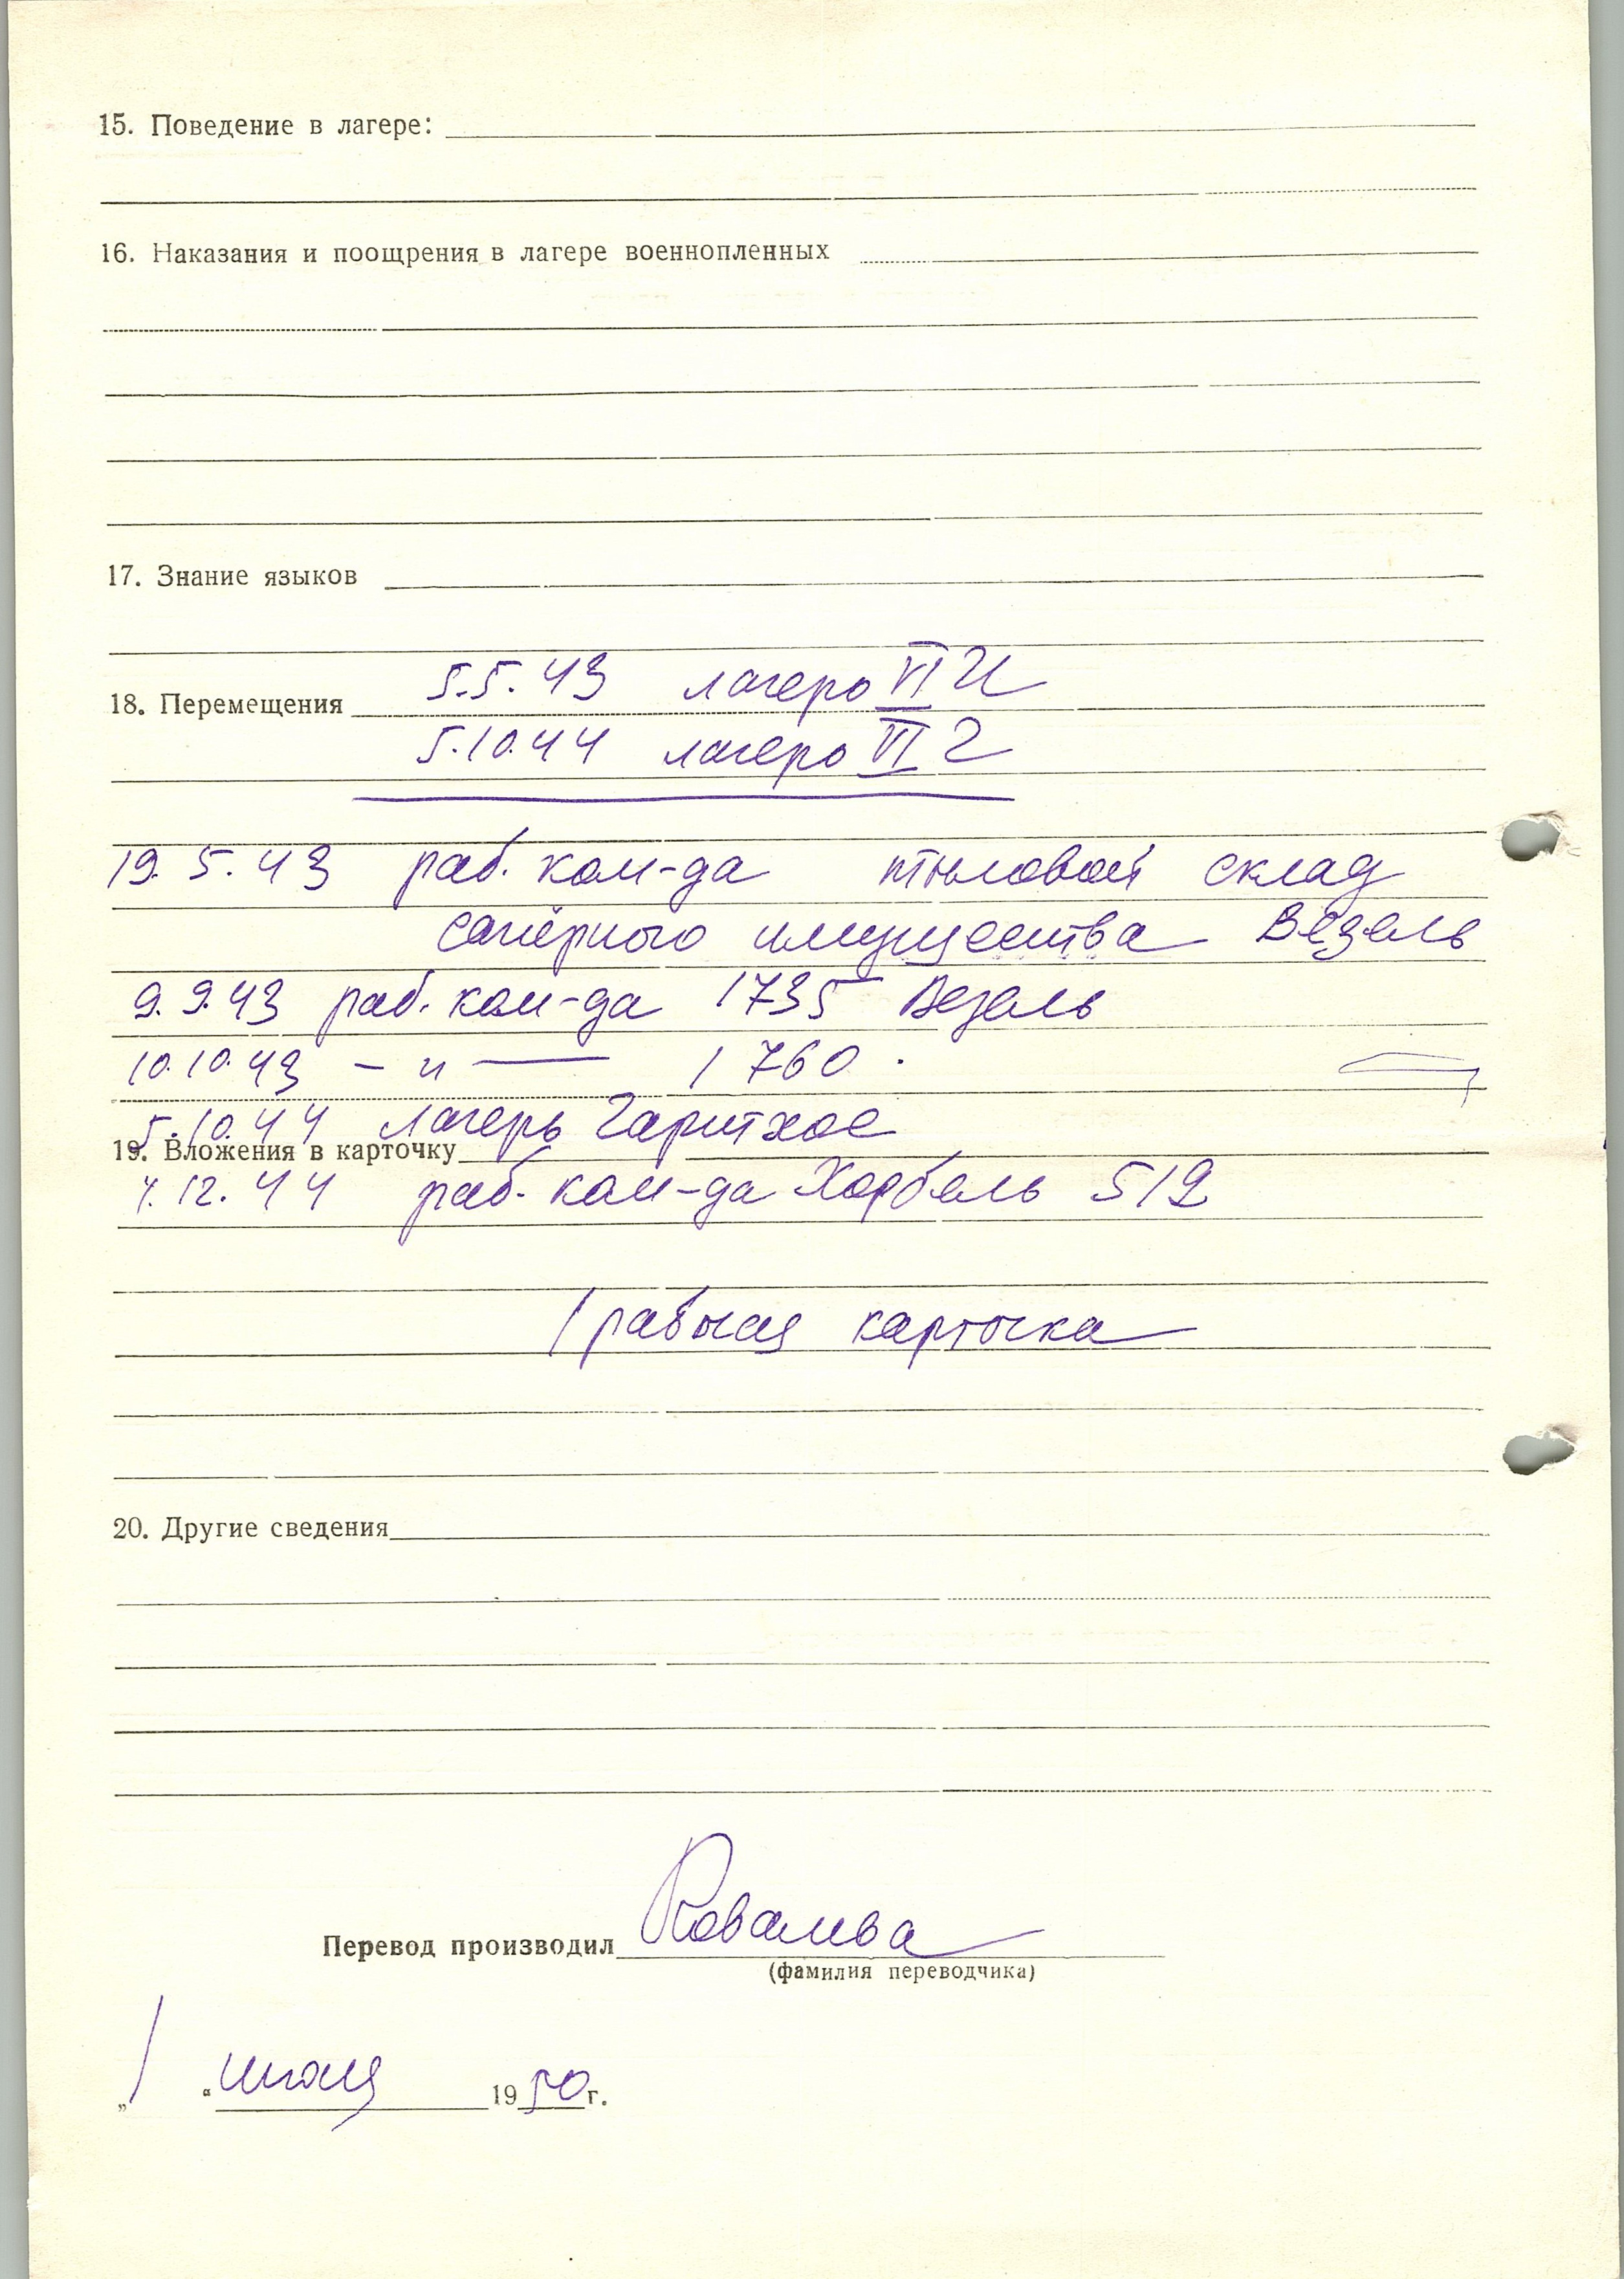 15. Поведение в лагере:
16. Наказания и поощрения в лагере военнопленных
17. Знание языков
18. Перемещения 5.5.43 лагерь VI И
5.10.44 лагерь VI Г
19.5.43 раб. ком-да тыловой склад
сапёрного имущества Везель
9.9.43 раб. ком-да 1735 Везель
10.10.43 – и — 1760
5.10.44 лагерь
19. Вложения в карточку
4.12.44 раб. ком-да Хорбель 519
1 рабочая карточка
20. Другие сведения
Перевод производил
(фамилия переводчика)
„1“ 1950 г.